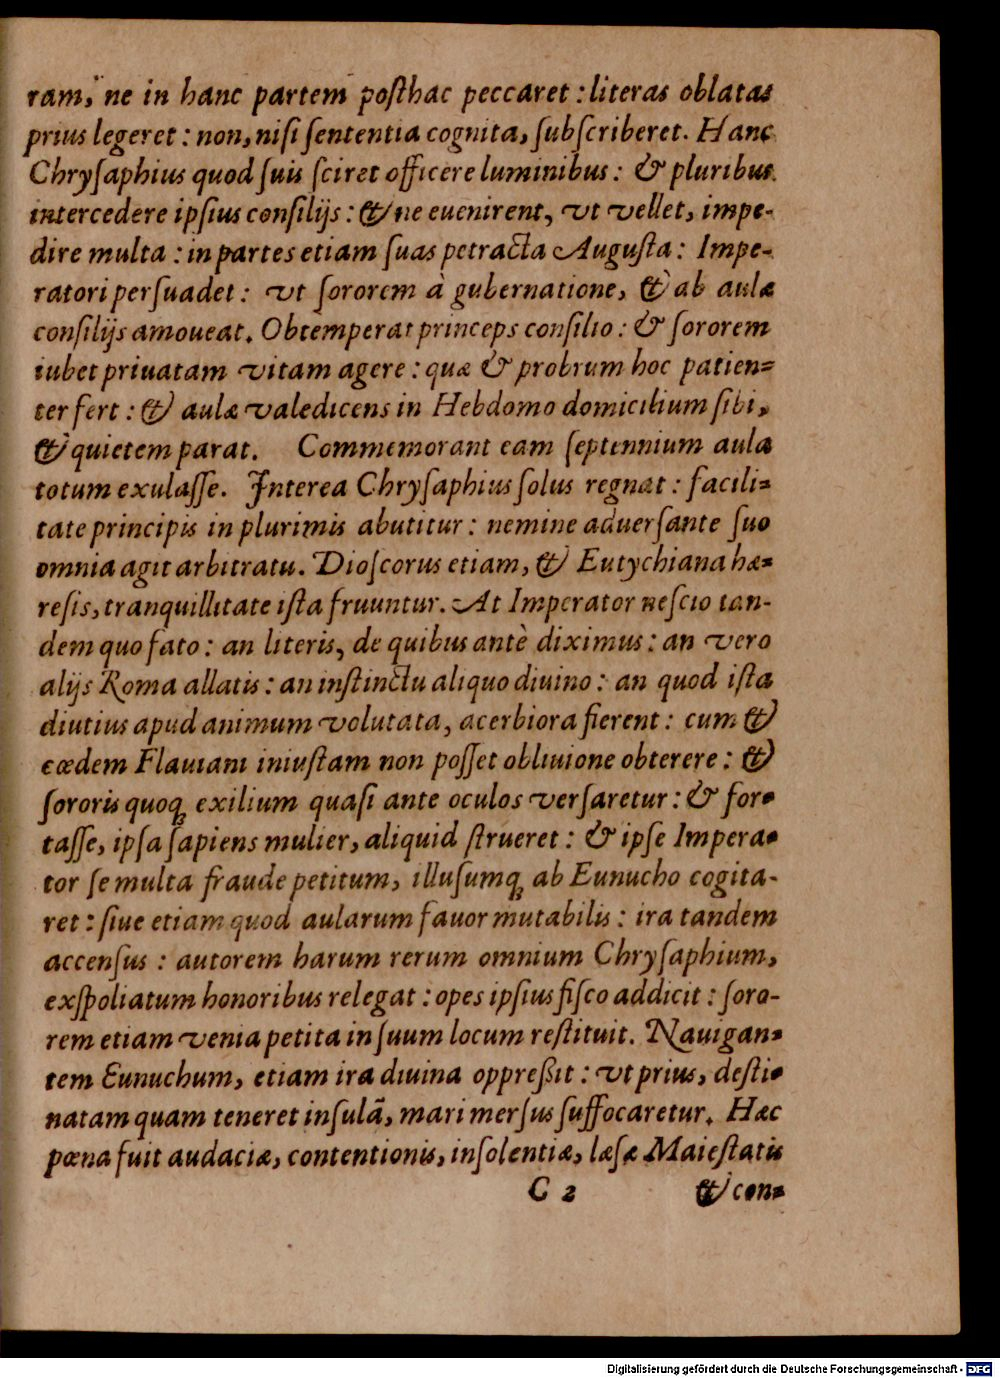 ram, ne in hanc partem poſthac peccaret : literas oblatas
prius legeret : non, niſi ſententia cognita, ſubſcriberet. Hanc
Chryſaphius quod ſuis ſciret officere luminibus : & pluribus
intercedere ipſius conſilijs : & ne euenirent, vt vellet, impe-
dire multa : in partes etiam ſuas petracta Auguſta : Impe-
ratori perſuadet : vt ſororem à gubernatione, & ab aulæ
conſilijs amoueat. Obtemperat princeps conſilio : & ſororem
iubet priuatam vitam agere : quæ & probrum hoc patien=
ter fert : & aulæ valedicens in Hebdomo domicilium ſibi,
& quietem parat. Commemorant eam ſeptennium aula
totum exulaſſe. Interea Chryſaphius ſolus regnat : facili=
tate principis in plurimis abutitur : nemine aduerſante ſuo
omnia agit arbitratu. Dioſcorus etiam, & Eutychiana hæ=
reſis, tranquillitate iſta fruuntur. At Imperator neſcio tan-
dem quo fato : an literis, de quibus antè diximus : an vero
alijs Roma allatis : an inſtinctu aliquo diuino : an quod iſta
diutius apud animum volutata, acerbiora fierent : cum &
cœdem Flauiani iniuſtam non poſſet obliuione obterere : &
ſororis quoqꝫ exilium quaſi ante oculos verſaretur : & for=
taſſe, ipſa ſapiens mulier, aliquid ſtrueret : & ipſe Impera=
tor ſe multa fraude petitum, illuſumqꝫ ab Eunucho cogita-
ret : ſiue etiam quod aularum fauor mutabilis : ira tandem
accenſus : autorem harum rerum omnium Chryſaphium,
exſpoliatum honoribus relegat : opes ipſius fiſco addicit : ſoro-
rem etiam venia petita in ſuum locum reſtituit. Nauigan=
tem Eunuchum, etiam ira diuina oppreßit : vt prius, deſti=
natam quam teneret inſulã, mari merſus ſuffocaretur. Hæc
pœna fuit audaciæ, contentionis, inſolentiæ, læſæ Maieſtatis
C 2 & con=
Digitalisierung gefördert durch die Deutsche Forschungsgemeinschaft - DFG